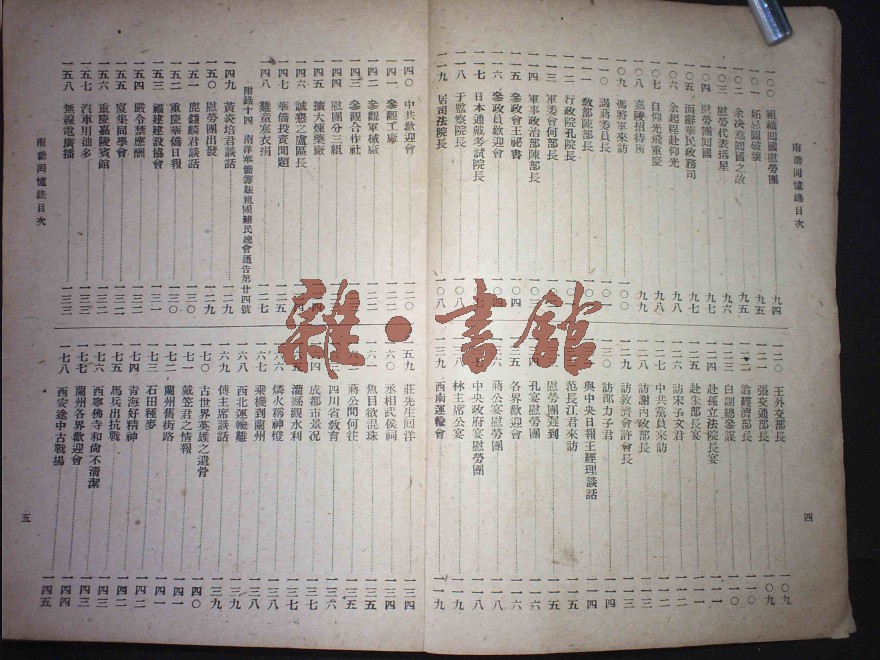 南僑回憶錄目次
一〇〇 組織回國慰勞團 九四
一〇一 妬忌圖破壞 九五
一〇二 余決意回國之故 九五
一〇三 慰勞代表抵星 九六
一〇四 慰勞團回國 九七
一〇五 面辭華民政務司 九七
一〇六 余起程赴仰光 九八
一〇七 自仰光飛重慶 九八
一〇八 嘉陵招待所 九九
一〇九 馮將軍來訪 一〇〇
一一〇 謁蔣委員長
一一一 教部陳部長
一一二 行政院孔院長
一一三 軍委會何部長
一一四 軍事政治部陳部長
一一五 參政會王祕書
一一六 參政員歡迎會
一一七 日本通戴考試院長
一一八 于監察院長 一〇八
一一九 居司法院長 一〇八
一二〇 王外交部長 一〇九
一二一 張交通部長 一〇九
一二二 翁經濟部長 一一〇
一二三 白副總參謀 一一〇
一二四 赴孫立法院長宴 一一一
一二五 赴朱部長宴 一一一
一二六 訪宋子文君 一一二
一二七 中共黨員來訪 一一二
一二八 訪謝內政部長 一一三
一二九 訪救濟會許會長 一一三
一三〇 訪邵力子君 一一四
與中央日報王經理談話 一一四
范長江君來訪 一一五
慰勞團遲到 一一五
孔宴慰勞團 一一六
各界歡迎會 一一六
蔣公宴慰勞團 一一七
中央政府宴慰勞團 一一八
林主席公宴 一一八
一三九 西南運輸會 一一九
四
一四〇 中共歡迎會 一二〇
一四一 參觀工廠
一四二 參觀軍械廠 一二二
一四三 參觀合作社
一四四 慰團分三組
一四五 擴大煉藥廠
一四六 誠懇之盧區長
一四七 華僑投資問題
一四八 難童寒衣捐 一二七
附錄十四 南洋華僑籌賑祖國難民總會通告第廿四號
一四九 黃炎培君談話 一二九
一五〇 慰勞團出發 一二九
一五一 鹿鍾麟君談話 一三〇
一五二 重慶華僑日報 一三〇
一五三 福建建設協會 一三一
一五四 嚴令禁應酬 一三一
一五五 廈集同學會 一三二
一五六 重慶嘉陵賓館 一三二
一五七 汽車用油多 一三三
一五八 無線電廣播 一三三
一五九 莊先生回洋 一三四
一六〇 丞相武侯祠 一三四
一六一 魚目欲混珠 一三五
蔣公問何往 一三五
四川省教育 一三六
成都市景况 一三七
灌縣觀水利 一三七
一六六 燐火稱神燈 一三八
一六七 乘機到蘭州 一三八
一六八 西北運輸難 一三九
一六九 傅主席談話 一三九
一七〇 古世界英雄之遺骨 一四〇
一七一 戴笠君之情報 一四一
一七二 蘭州舊街路 一四一
一七三 石田種麥 一四二
一七四 青海好精神 一四二
一七五 馬兵出抗戰 一四三
一七六 西寧佛寺和尚不清潔 一四三
一七七 蘭州各界歡迎會 一四四
一七八 西安途中古戰場 一四五
南僑回憶錄目次
五
雜·書館